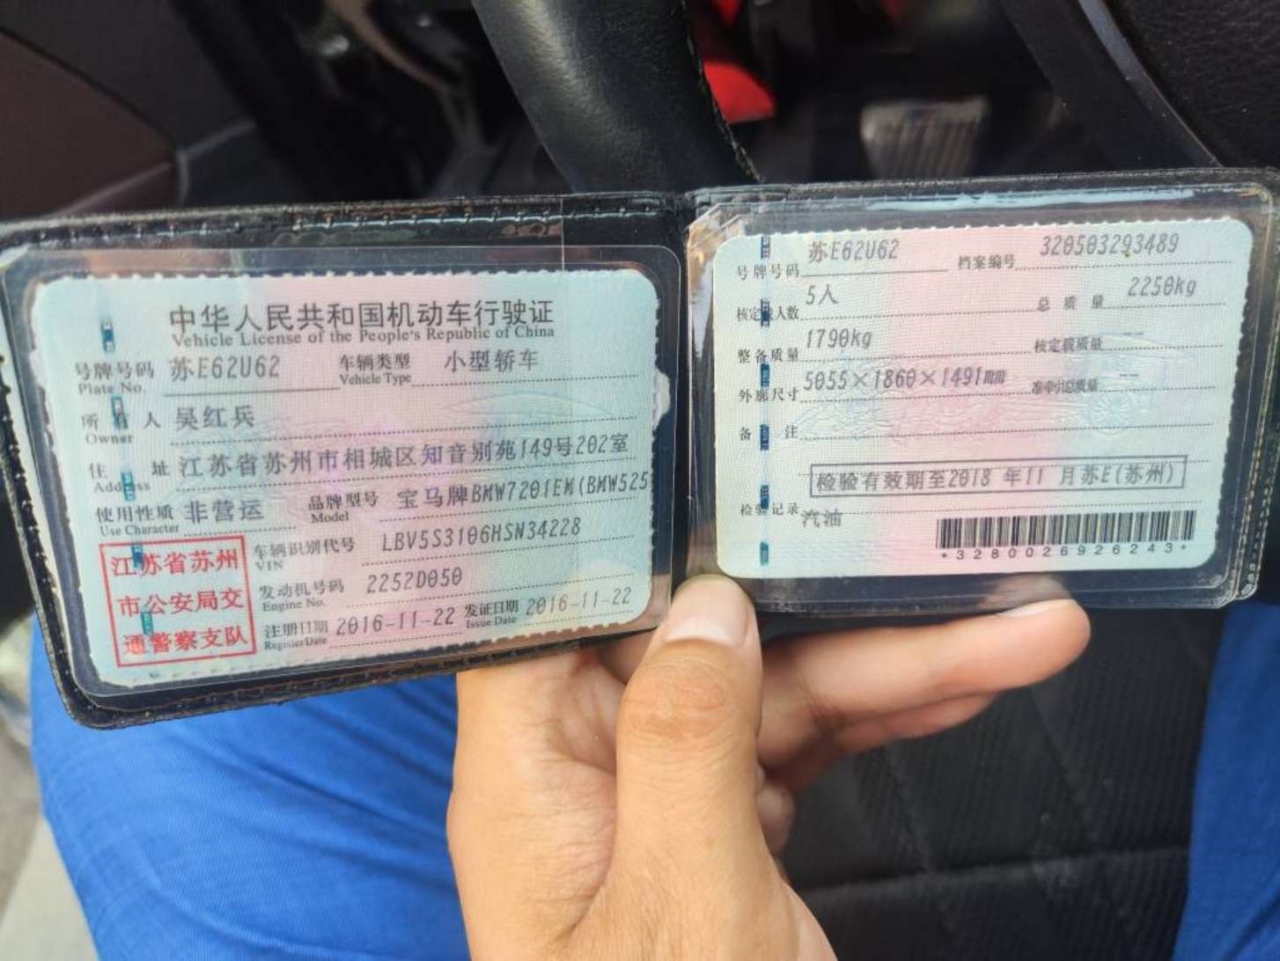 中华人民共和国机动车行驶证
Vehicle License of the People's Republic of China
号牌号码 苏E62U62 车辆类型 小型轿车
Plate No. Vehicle Type
所有人 吴红兵
Owner
住址 江苏省苏州市相城区知音别苑149号202室
Address
使用性质 非营运 品牌型号 宝马牌BMW7201EM(BMW525
Use Character Model
江苏省苏州
市公安局交
通警察支队
车辆识别代号 LBV5S3106HSN34228
VIN
发动机号码 2252D050
Engine No.
注册日期 2016-11-22 发证日期 2016-11-22
Register Date Issue Date
号牌号码 苏E62U62 档案编号 320503293489
核定载人数 5人 总质量 2250kg
整备质量 1790kg 核定载质量 --
外廓尺寸 5055×1860×1491 准牵引总质量 --
备注
检验有效期至2018 年11 月苏E(苏州)
检验记录
汽油
*3280026926243*